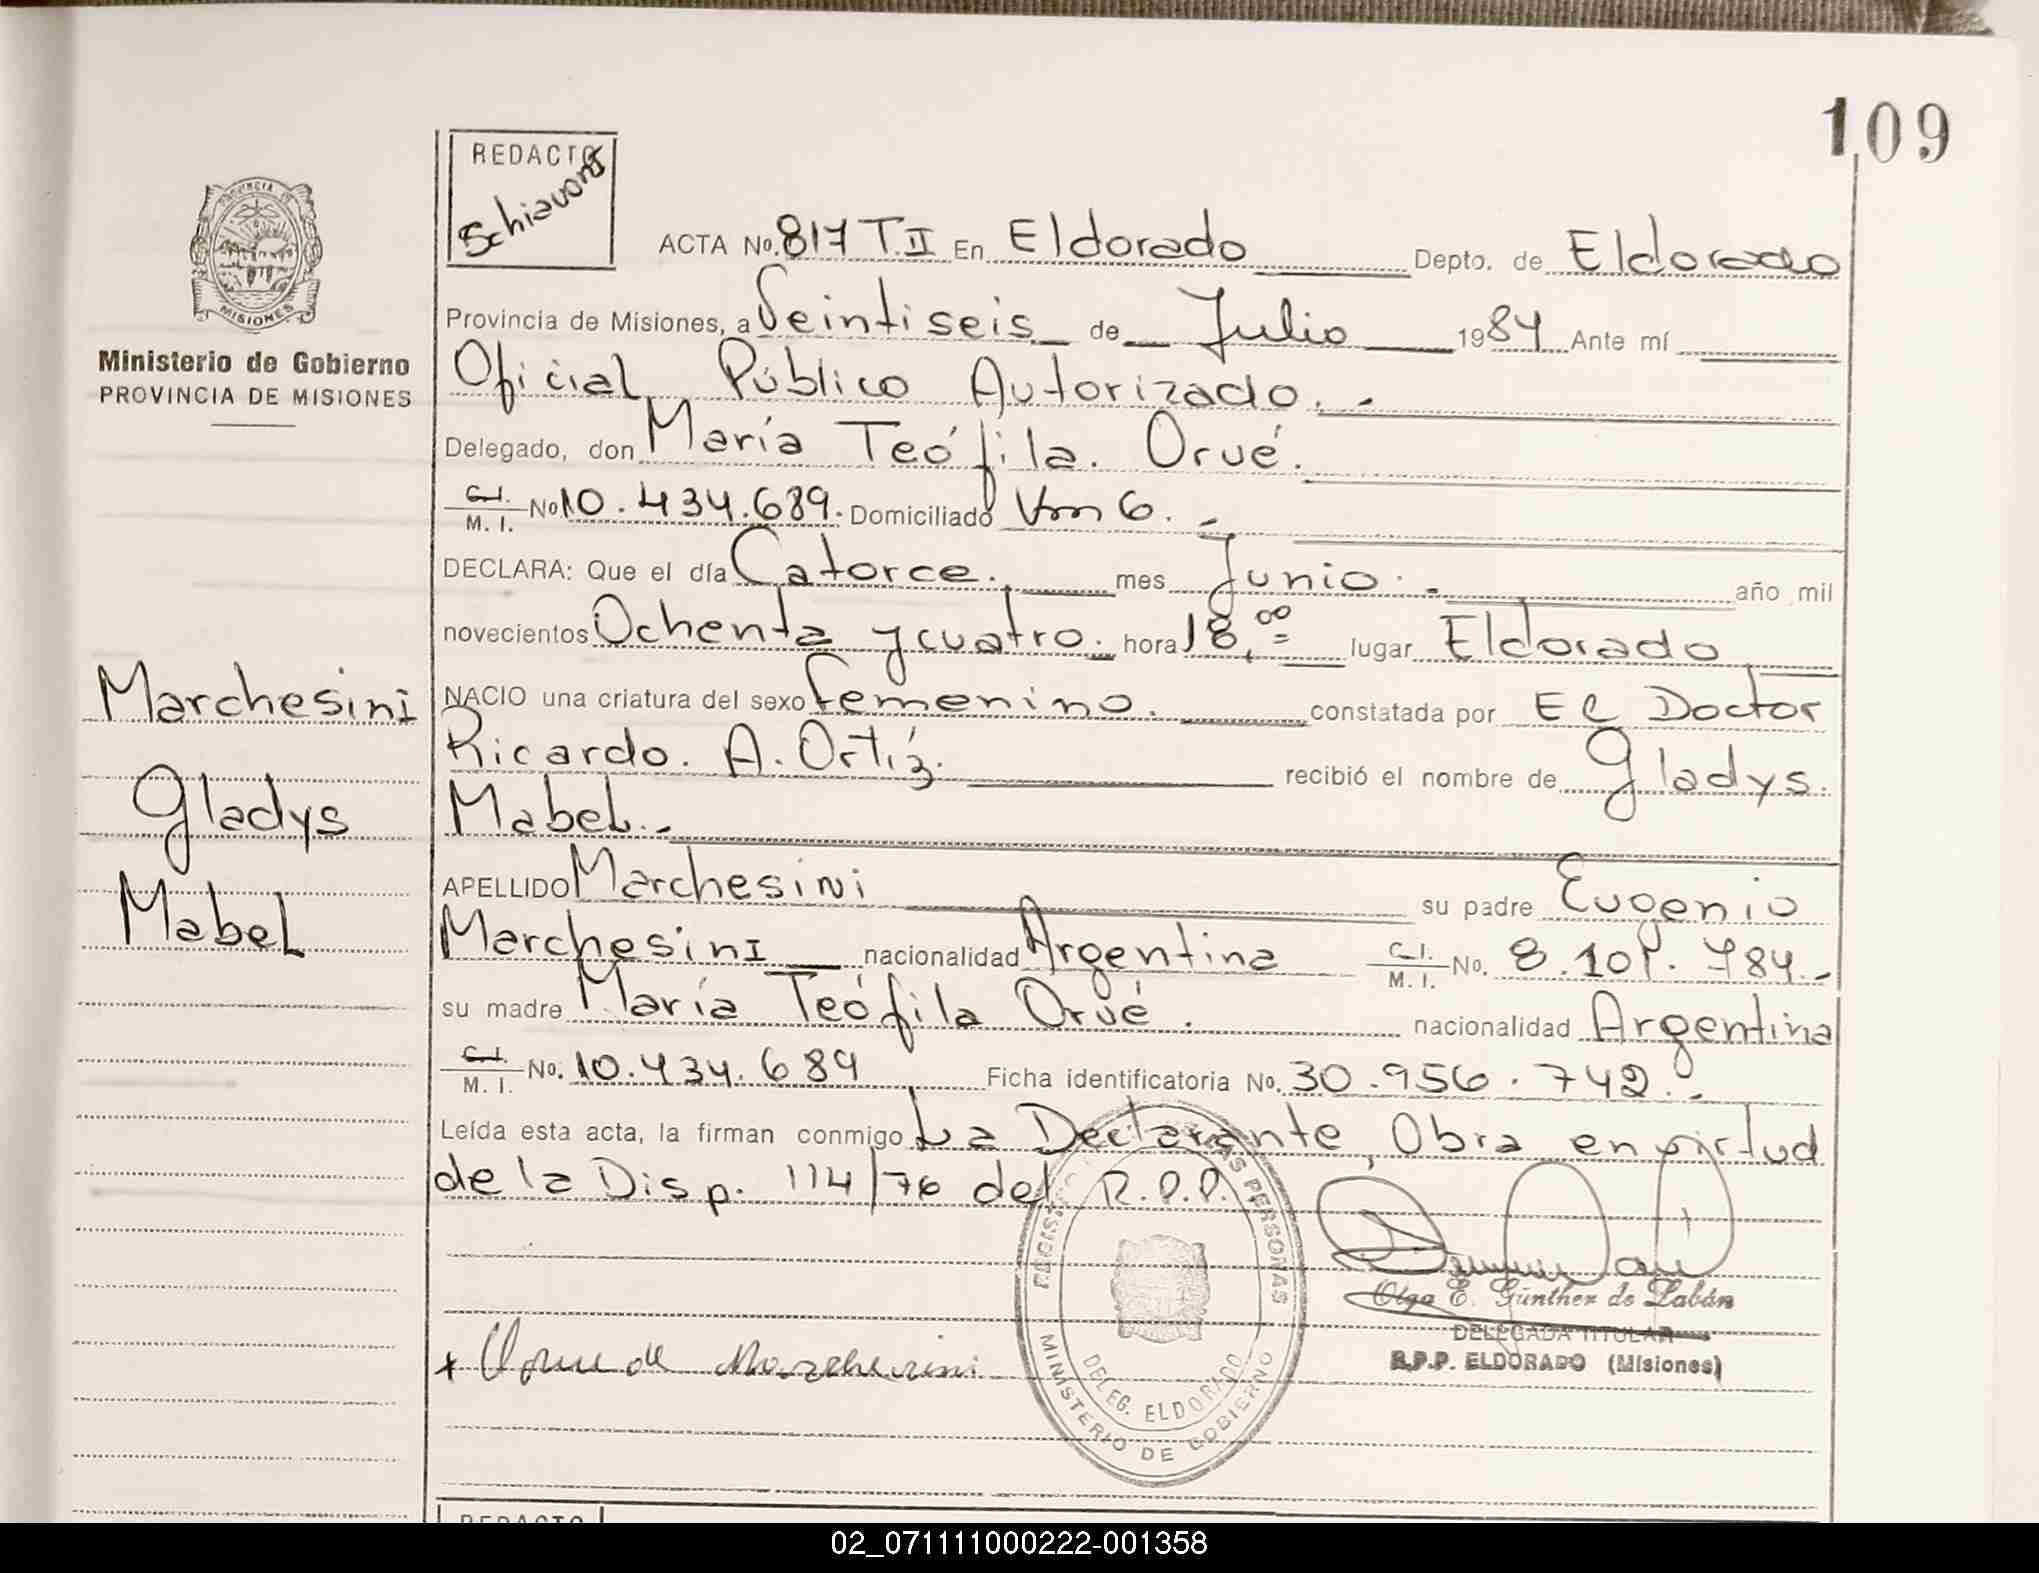 109
REDACTO
Schiavoni
PROVINCIA DE
MISIONES
Ministerio de Gobierno
PROVINCIA DE MISIONES
ACTA No. 817 T.II En Eldorado Depto. de Eldorado
Provincia de Misiones, a Veintiseis de Julio 1984 Ante mí
Oficial Público Autorizado.
Delegado, don María Teófila. Orvé.
C.I. M. I. No 10.434.689. Domiciliado Km 6.
DECLARA: Que el día Catorce. mes Junio. año mil
novecientos Ochenta y cuatro. hora 18,00 lugar Eldorado
Marchesini
NACIO una criatura del sexo femenino. constatada por El Doctor
Ricardo. A. Ortíz. recibió el nombre de Gladys.
Gladys
Mabel.-
Mabel
APELLIDO Marchesini su padre Eugenio
Marchesini nacionalidad Argentina C.I. M. I. No. 8.10 . 784.-
su madre María Teófila Orvé. nacionalidad Argentina
C.I. M. I. No. 10.434.689 Ficha identificatoria No. 30.956.742.-
Leída esta acta, la firman conmigo La Declarante, Obra en virtud
de la Disp. 114/76 del R.P.P.
Olga E. Günther de Labán
DELEGADA TITULAR
R.P.P. ELDORADO (Misiones)
de Marchesini
PERSONAS
DELEG. ELDORADO
MINISTERIO DE GOBIERNO
REDACTO
02_071111000222-001358